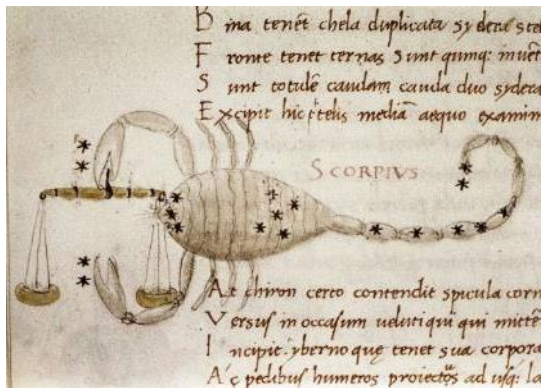 Bina tenēt chela duplicata sydera ste
Fronte tenet ternas Sunt qumq: inuēt
Sunt totidē caudam cauda duo sydera
Excipit hic telis mediā aequo examin
SCORPIVS
At chiron certo contendit spicula corn
Versus in occasum veluti qui qui mittē
Incipit. yberno que tenet sua corpora
Ac pedibus humeros proiectos ad usq: la